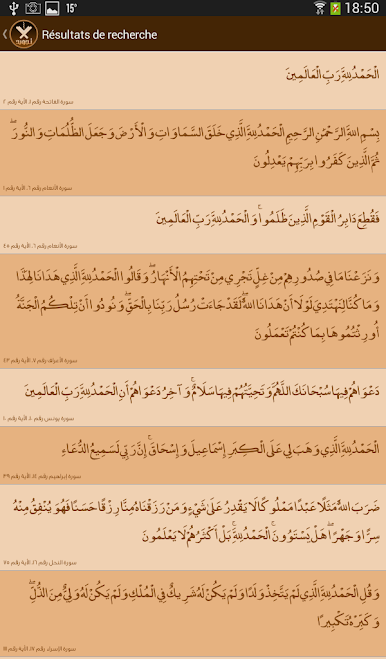 15°
18:50
Résultats de recherche
الْحَمْدُ لِلَّهِ رَبِّ الْعَالَمِينَ
سورة الفاتحة رقم ١، الآية رقم ٢
بِسْمِ اللَّهِ الرَّحْمَٰنِ الرَّحِيمِ الْحَمْدُ لِلَّهِ الَّذِي خَلَقَ السَّمَاوَاتِ وَالْأَرْضَ وَجَعَلَ الظُّلُمَاتِ وَالنُّورَ ۖ
ثُمَّ الَّذِينَ كَفَرُوا بِرَبِّهِمْ يَعْدِلُونَ
سورة الأنعام رقم ٦، الآية رقم ١
فَقُطِعَ دَابِرُ الْقَوْمِ الَّذِينَ ظَلَمُوا ۚ وَالْحَمْدُ لِلَّهِ رَبِّ الْعَالَمِينَ
سورة الأنعام رقم ٦، الآية رقم ٤٥
وَنَزَعْنَا مَا فِي صُدُورِهِمْ مِنْ غِلٍّ تَجْرِي مِنْ تَحْتِهِمُ الْأَنْهَارُ ۖ وَقَالُوا الْحَمْدُ لِلَّهِ الَّذِي هَدَانَا لِهَٰذَا
وَمَا كُنَّا لِنَهْتَدِيَ لَوْلَا أَنْ هَدَانَا اللَّهُ ۖ لَقَدْ جَاءَتْ رُسُلُ رَبِّنَا بِالْحَقِّ ۖ وَنُودُوا أَنْ تِلْكُمُ الْجَنَّةُ
أُورِثْتُمُوهَا بِمَا كُنْتُمْ تَعْمَلُونَ
سورة الأعراف رقم ٧، الآية رقم ٤٣
دَعْوَاهُمْ فِيهَا سُبْحَانَكَ اللَّهُمَّ وَتَحِيَّتُهُمْ فِيهَا سَلَامٌ ۚ وَآخِرُ دَعْوَاهُمْ أَنِ الْحَمْدُ لِلَّهِ رَبِّ الْعَالَمِينَ
سورة يونس رقم ١٠، الآية رقم ١٠
الْحَمْدُ لِلَّهِ الَّذِي وَهَبَ لِي عَلَى الْكِبَرِ إِسْمَاعِيلَ وَإِسْحَاقَ ۚ إِنَّ رَبِّي لَسَمِيعُ الدُّعَاءِ
سورة إبراهيم رقم ١٤، الآية رقم ٣٩
ضَرَبَ اللَّهُ مَثَلًا عَبْدًا مَمْلُوكًا لَا يَقْدِرُ عَلَىٰ شَيْءٍ وَمَنْ رَزَقْنَاهُ مِنَّا رِزْقًا حَسَنًا فَهُوَ يُنْفِقُ مِنْهُ
سِرًّا وَجَهْرًا ۖ هَلْ يَسْتَوُونَ ۚ الْحَمْدُ لِلَّهِ ۚ بَلْ أَكْثَرُهُمْ لَا يَعْلَمُونَ
سورة النحل رقم ١٦، الآية رقم ٧٥
وَقُلِ الْحَمْدُ لِلَّهِ الَّذِي لَمْ يَتَّخِذْ وَلَدًا وَلَمْ يَكُنْ لَهُ شَرِيكٌ فِي الْمُلْكِ وَلَمْ يَكُنْ لَهُ وَلِيٌّ مِنَ الذُّلِّ ۖ
وَكَبِّرْهُ تَكْبِيرًا
سورة الإسراء رقم ١٧، الآية رقم ١١١